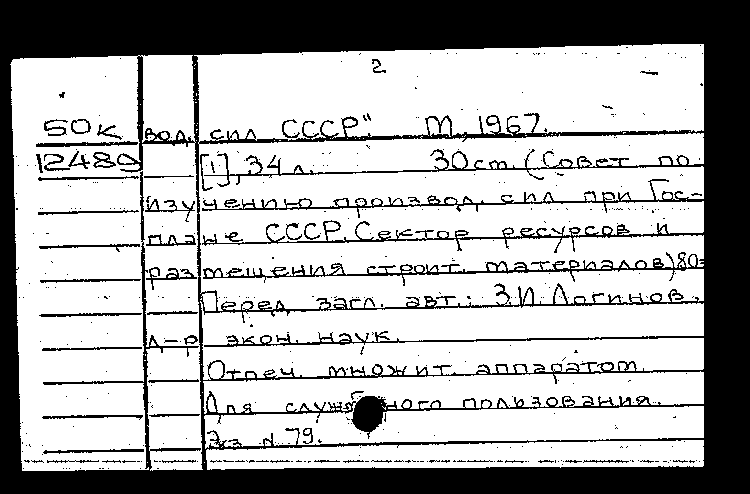 2
50к вод. сил СССР". М., 1967.
12489 [1], 34 л. 30 см. (Совет по
изучению производ. сил при Гос-
плане СССР. Сектор ресурсов и
размещения строит. материалов) 80э
Перед загл. авт.: З.И. Логинов,
д-р экон. наук.
Отпеч. множит. аппаратом.
Для служебного пользования.
Экз. N 79.